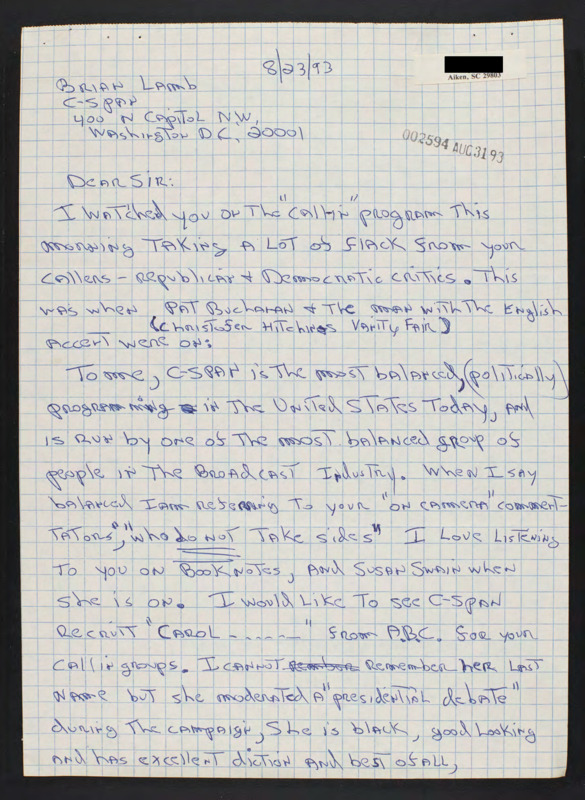 8/23/93
Aiken, SC 29803
Brian Lamb
C-SPAN
400 N Capitol N.W.
Washington D.C. 20001
002594 AUG 31 93
Dear Sir:
I watched you on the "Call-in" program this
morning taking a lot of flack from your
callers - republican & Democratic critics. This
was when Pat Buchanan & the man with the English
(Christofer Hitchings Vanity Fair)
accent were on:
To me, C-SPAN is the most balanced, (politically)
programming in the United States today, and
is run by one of the most balanced group of
people in the Broadcast Industry. When I say
balanced I am referring to your "on camera" comment-
tators", "who do not take sides" I love listening
to you on Booknotes, and Susan Swain when
she is on. I would like to see C-Span
recruit "Carol - - - - - -" from A.B.C. for your
call in groups. I cannot remember her last
name but she moderated a "presidential debate"
during the campaign, She is black, good looking
and has excellent diction and best of all,